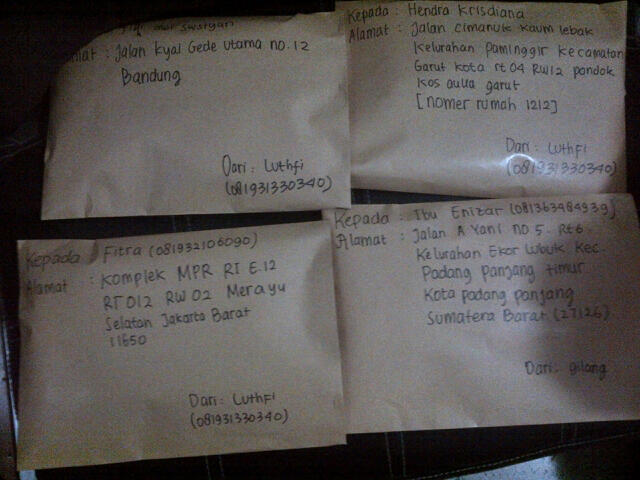 Jalan Kyai Gede Utama no.12
Bandung
Dari: Luthfi
(081931330340)
Kepada : Hendra Krisdiana
Alamat : Jalan Cimanuk Kaum lebak
Kelurahan Paminggir Kecamatan
Garut Kota rt 04 RW12 pondok
Kos aulia garut
[nomer rumah 1212]
Dari: Luthfi
(081931330340)
Kepada : Fitra (081932106090)
Alamat : Komplek MPR RI E.12
RT012 RW 02 Meruyu
Selatan Jakarta Barat
11650
Dari: Luthfi
(081931330340)
Kepada : Ibu Enizar (081363484939)
Alamat : Jalan A Yani no 5. Rt6.
Kelurahan Ekor Lubuk Kec.
Padang Panjang timur
Kota padang panjang
Sumatera Barat (27126)
Dari: gilang